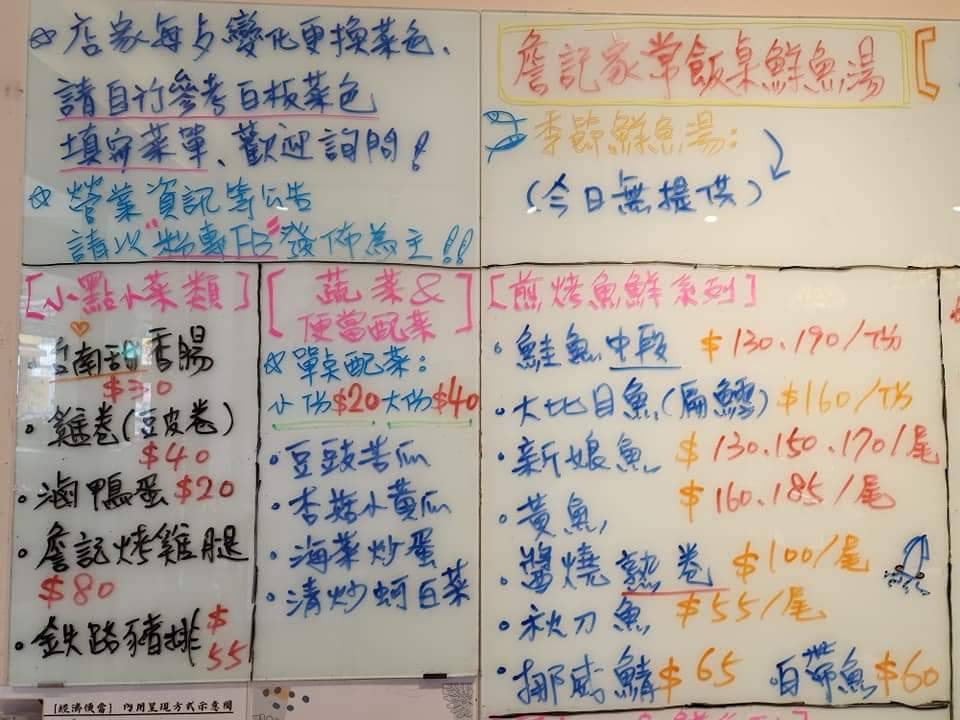 店家每夕變化更換菜色、
請自行參考白板菜色
填寫菜單、歡迎詢問!
營業資訊等公告
請以"粉專FB"發佈為主!!
詹記家常飯桌鮮魚湯
季節鮮魚湯:
(今日無提供)
[小點小菜類]
台南甜香腸
$30
・雞卷(豆皮卷)
$40
・滷鴨蛋 $20
・詹記烤雞腿
$80
・鉄路豬排 $55
[蔬菜&
便當配菜]
單點配菜:
小份$20 大份$40
・豆豉苦瓜
・杏菇小黃瓜
・海菜炒蛋
・清炒蚵白菜
[煎烤魚鮮系列]
・鮭魚中段 $130、190/份
・大比目魚(扁鱈) $160/份
・新娘魚 $130、150、170/尾
・黃魚 $160、185/尾
・醬燒熟卷 $100/尾
・秋刀魚 $55/尾
・挪威鯖 $65 白帶魚 $60
[經濟便當] 內用呈現方式示意欄